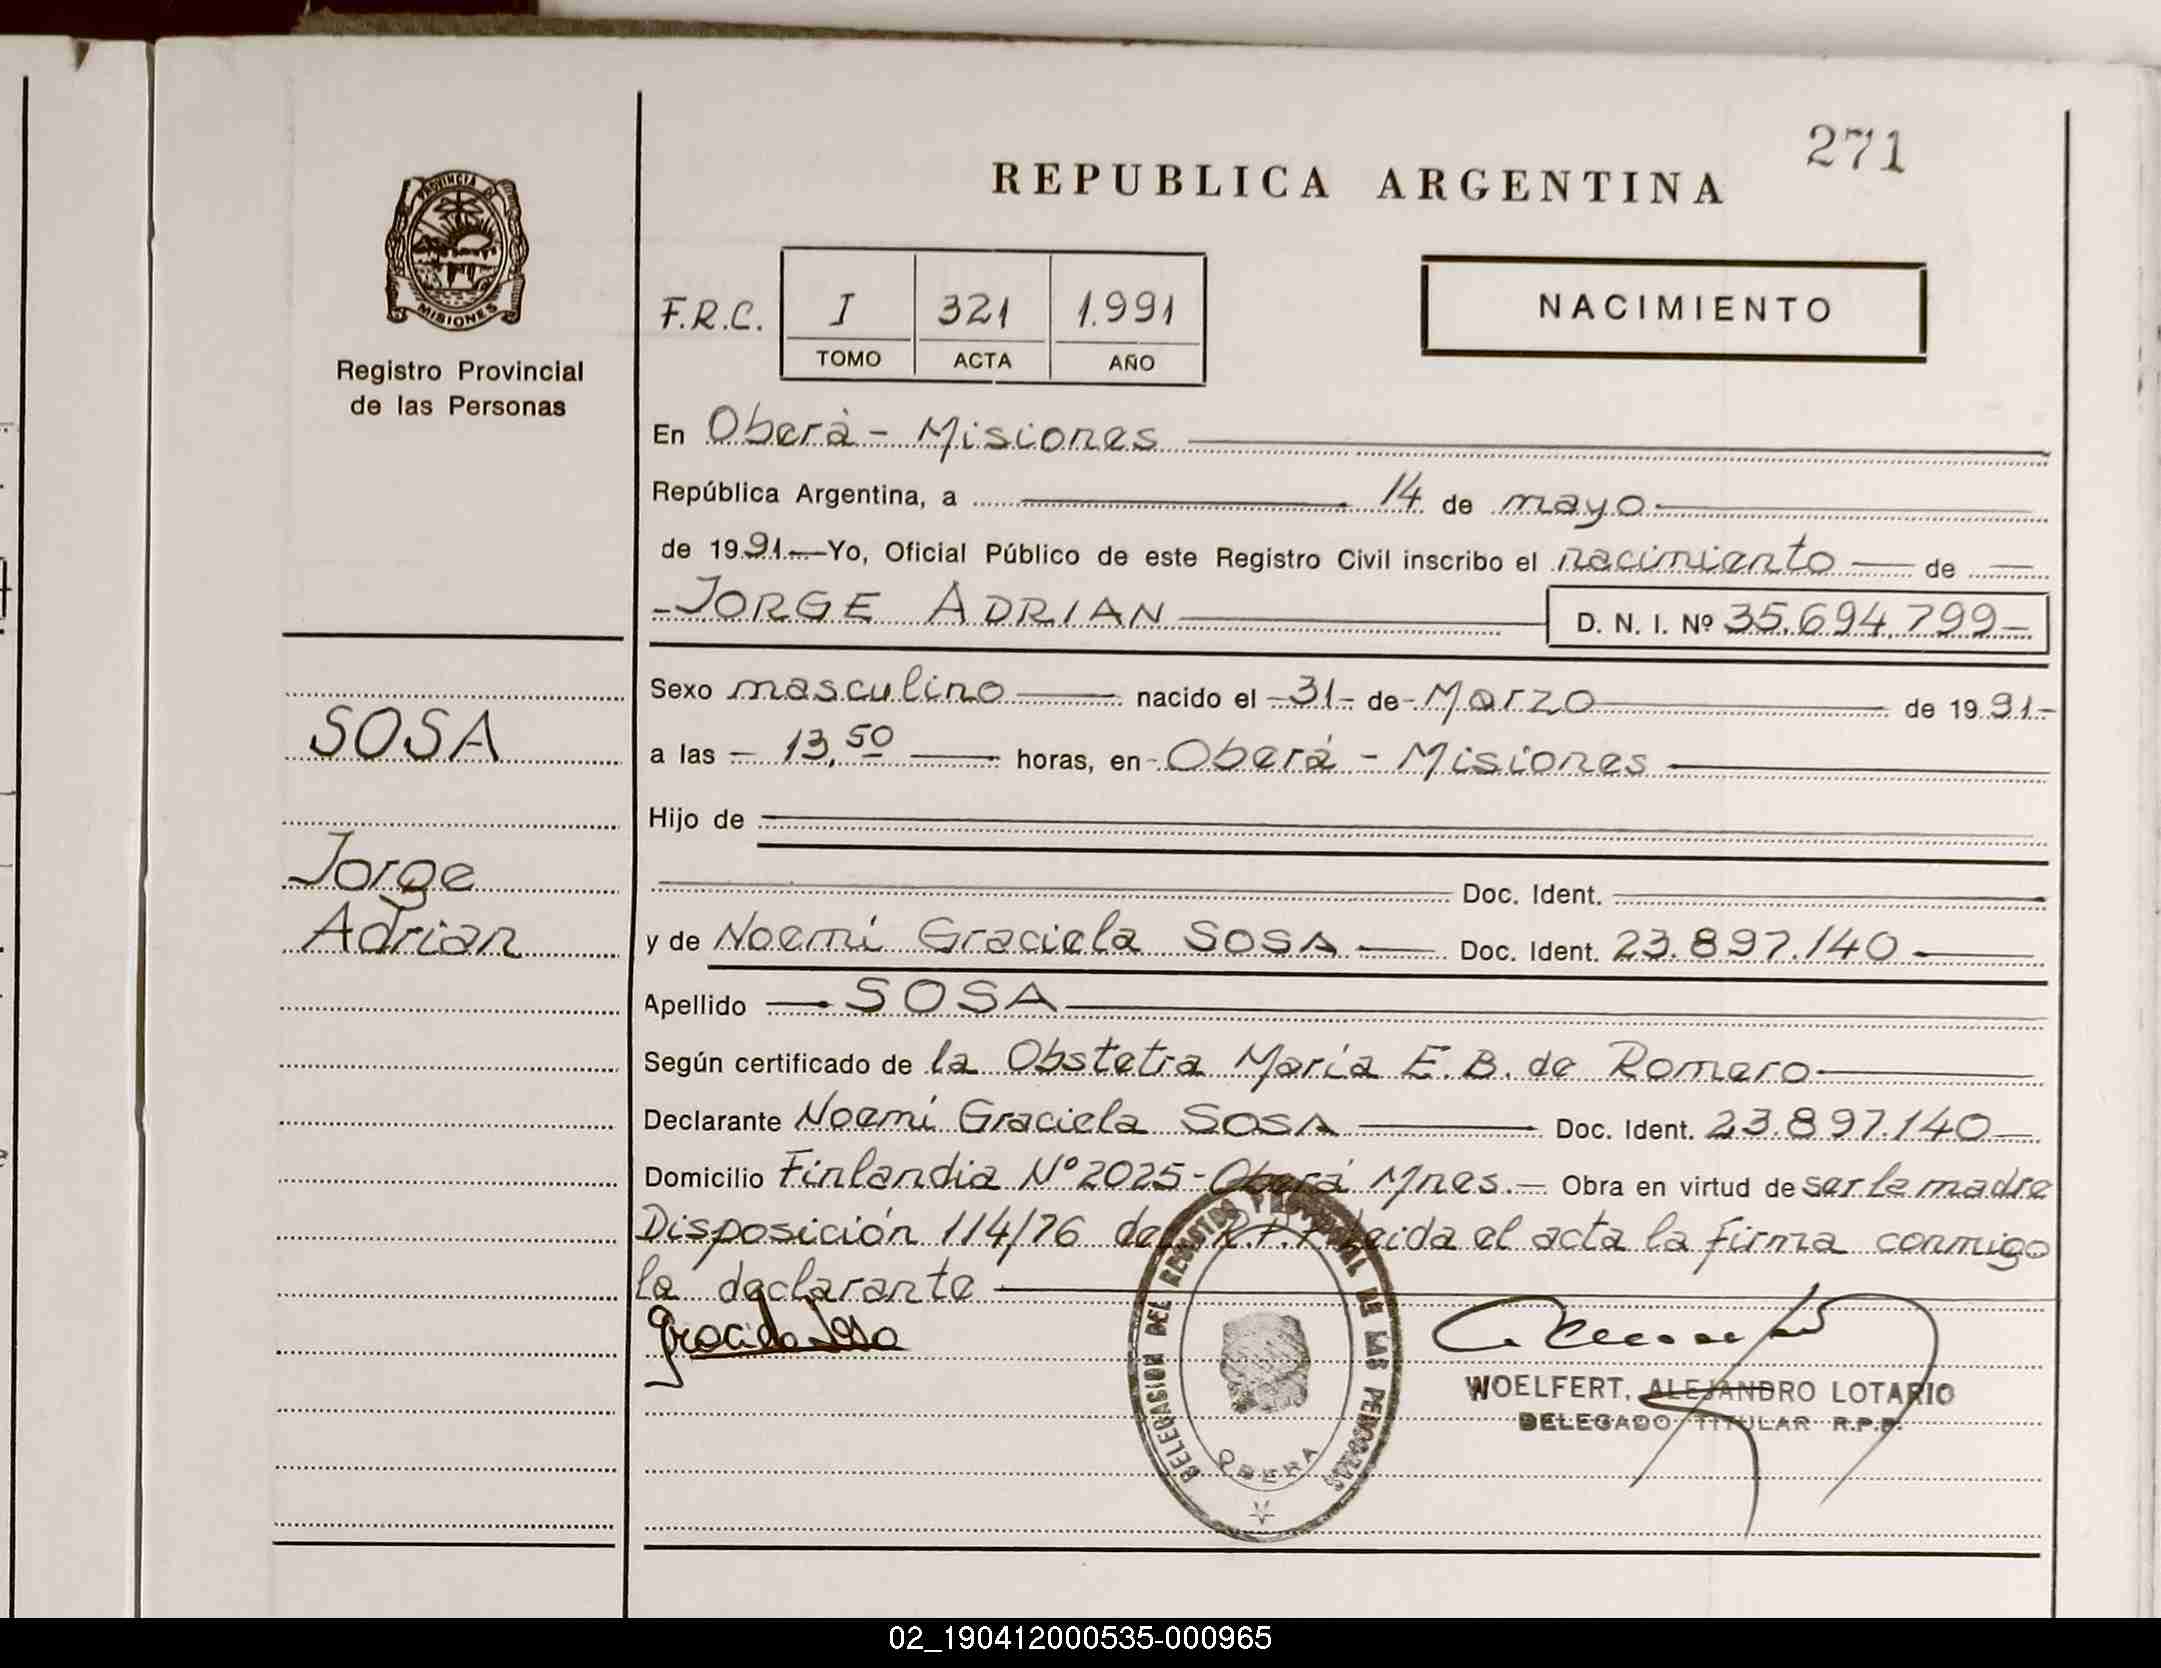 271
REPUBLICA ARGENTINA
PROVINCIA DE
MISIONES
Registro Provincial
de las Personas
NACIMIENTO
F.R.C. I 321 1.991
TOMO ACTA AÑO
En Oberá - Misiones
República Argentina, a 14 de mayo
de 1991 Yo, Oficial Público de este Registro Civil inscribo el nacimiento de
- JORGE ADRIAN D. N. I. Nº 35.694.799-
SOSA
Jorge
Adrian
Sexo masculino nacido el -31- de - Marzo de 1991-
a las - 13,50 horas, en - Oberá - Misiones
Hijo de
Doc. Ident.
y de Noemí Graciela SOSA Doc. Ident. 23.897.140
Apellido SOSA
Según certificado de la Obstetra María E. B. de Romero
Declarante Noemí Graciela SOSA Doc. Ident. 23.897.140
Domicilio Finlandia Nº 2025 - Oberá Mnes. - Obra en virtud de ser la madre
Disposición 114/76 del R.P.P. Leida el acta la firma conmigo
la declarante
Graciela Sosa
DELEGACION DEL REGISTRO PROVINCIAL DE LAS PERSONAS
OBERA
WOELFERT, ALEJANDRO LOTARIO
DELEGADO TITULAR R.P.P.
02_190412000535-000965